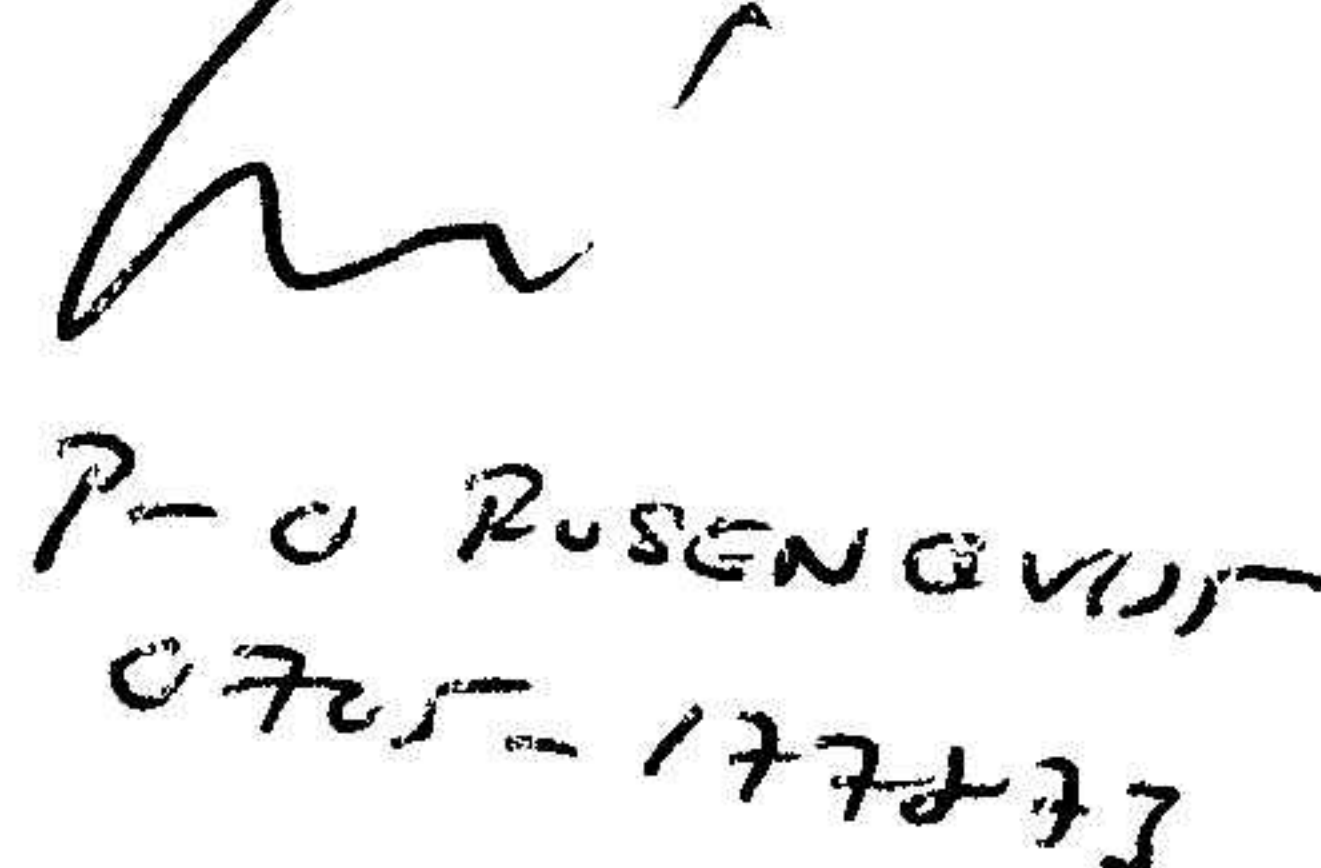 P-O ROSENQVIST
0705-177873